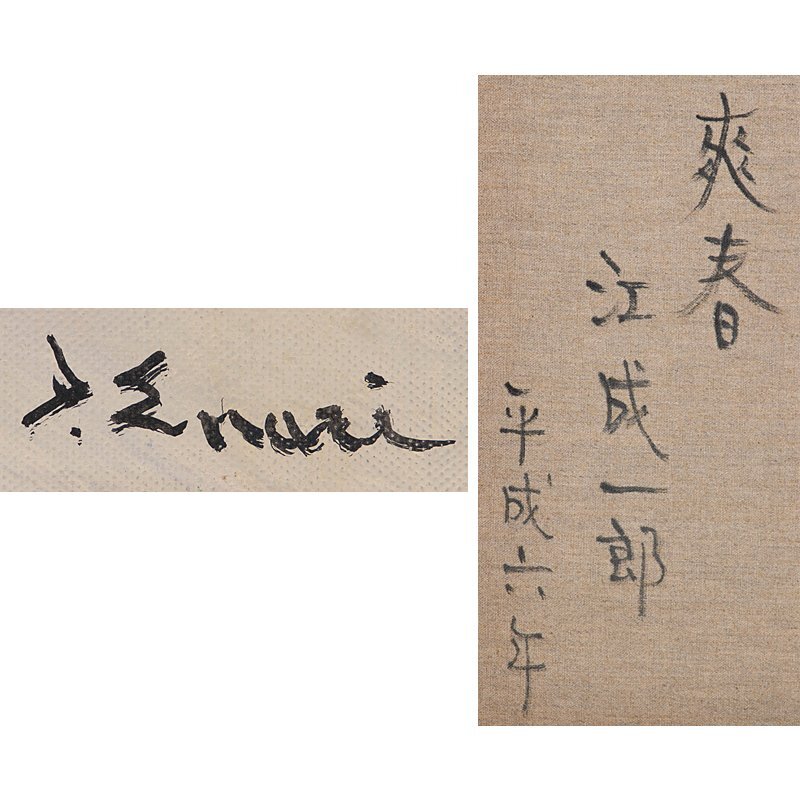 I. Enari
爽春
江成一郎
平成六年